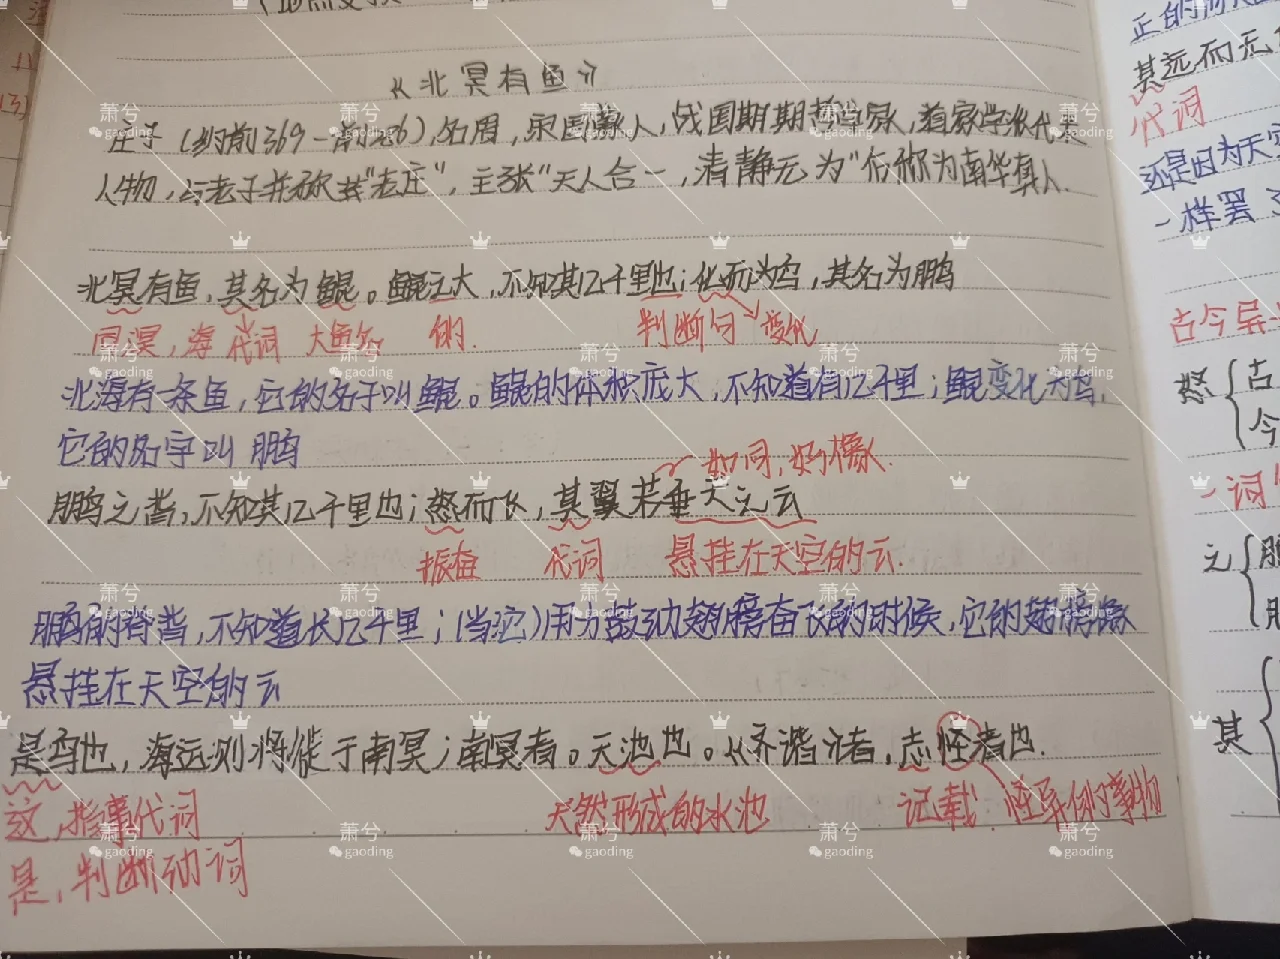 《北冥有鱼》
庄子(约前369-前286),名周,宋国蒙人,战国期期哲学家,道家学派代表
人物,与老子并称其"老庄",主张"天人合一,清静无为"后称为南华真人.
北冥有鱼,其名为鲲。鲲之大,不知其几千里也;化而为鸟,其名为鹏
同溟,海 代词 大鱼名 的. 判断句 变化
北海有一条鱼,它的名子叫鲲。鲲的体积庞大,不知道有几千里;鲲变化为鸟,
它的名字叫鹏
如同,好像.
鹏之背,不知其几千里也;怒而飞,其翼若垂天之云
振奋 代词 悬挂在天空的云.
鹏的脊背,不知道长几千里;(当它)用力鼓动翅膀奋飞的时候,它的翅膀像
悬挂在天空的云
是鸟也,海运则将徙于南冥;南冥者。天池也。《齐谐》者,志怪者也.
这,指事代词 天然形成的水池 记载 怪异的事物
是,判断动词
正的
其远而无
代词
还是因为天空
一样罢了
古今异
怒 古
今
一词
之 鹏
其
萧兮
gaoding